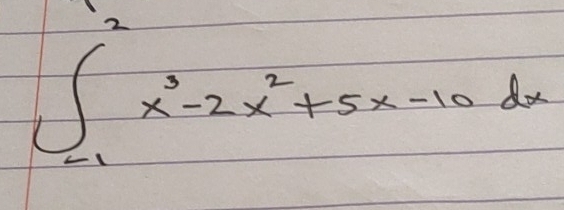 ∫₋₁² x³-2x²+5x-10 dx